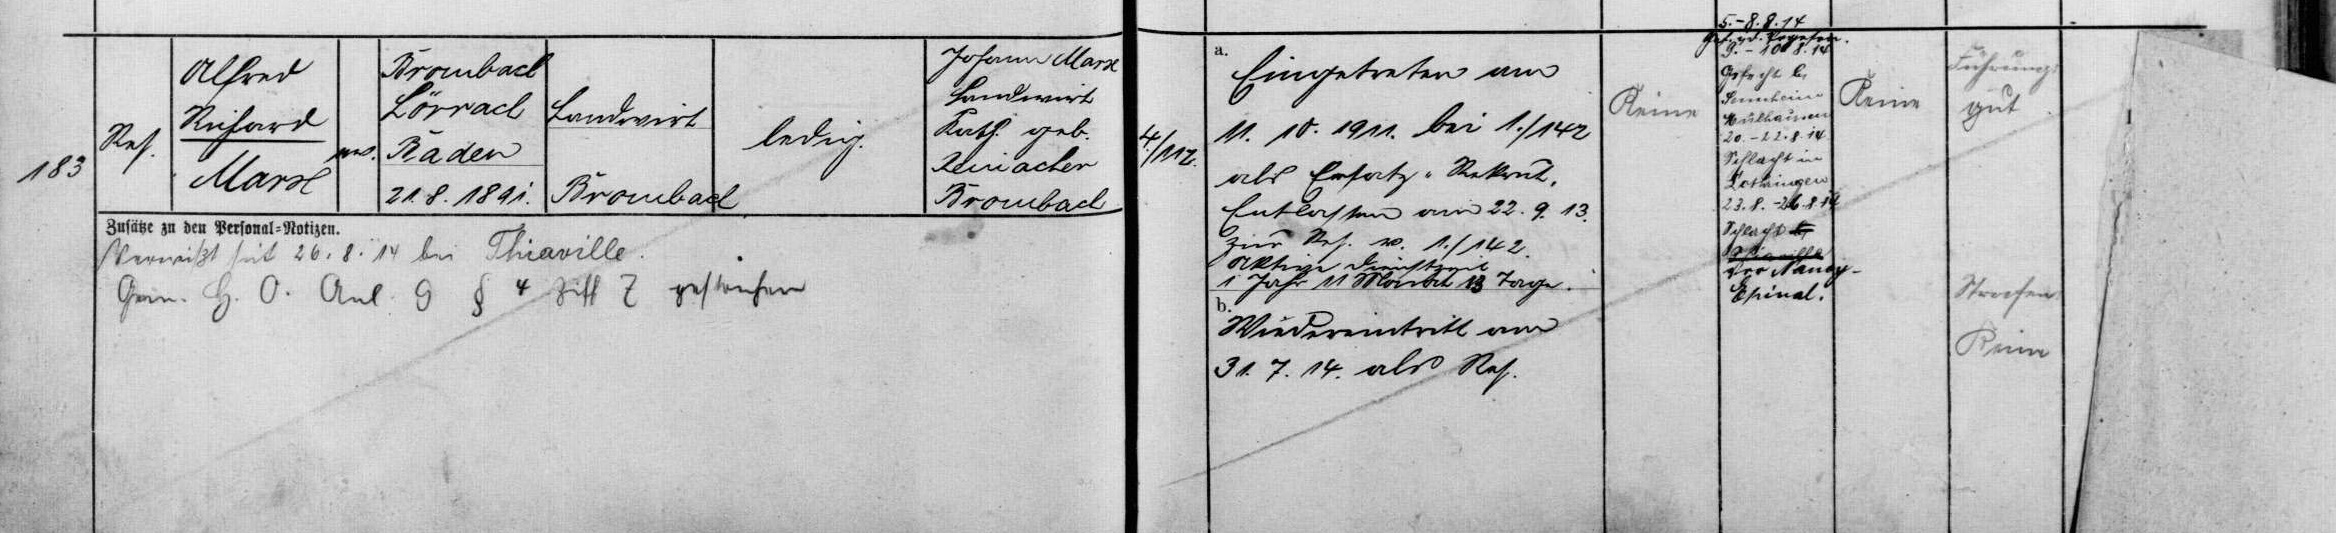 183
Res.
Alfred
Richard
Marx
ev.
Brombach
Lörrach
Baden
21.8.1891.
Landwirt
Brombach
ledig.
Johann Marx
Landwirt
Kath. geb.
Brombach
Zusätze zu den Personal-Notizen.
Vermißt seit 26.8.14 bei Thiaville.
Gem. H. O. Anl. 9 § 4 Ziff 7 gestrichen
4./112.
a.
Eingetreten am
11. 10. 1911. bei 1./142
als Ersatz-Rekrut.
Entlassen am 22. 9. 13.
zur Res. v. 1./142.
Aktive Dienstzeit
1 Jahr 11 Monate 13 Tage.
b.
Wiedereintritt am
31. 7. 14. als Res.
Keine
5.-8.8.14
Gef. i. d. Vogesen.
9.-10.8.14
Gefecht b.
Sennheim
Mülhausen
20.-22.8.14
Schlacht in
Lothringen
23.8.-26.8.14
Schlacht
vor Nancy-
Epinal.
Keine
Führung:
gut
Strafen:
Keine